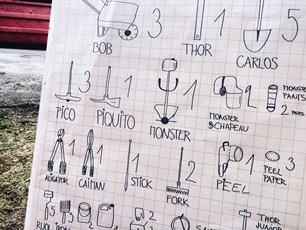 3 1 5
BOB THOR CARLOS
3 1 1
PICO PIQUITO MONSTER
MONSTER
&CHAPEAU
MONSTER
PANTS
2
1 1 1 2 1 3
ALIGATOR CAÏMAN STICK FORK PEEL
PEEL
PAPER
5 2
THOR
JUNIOR